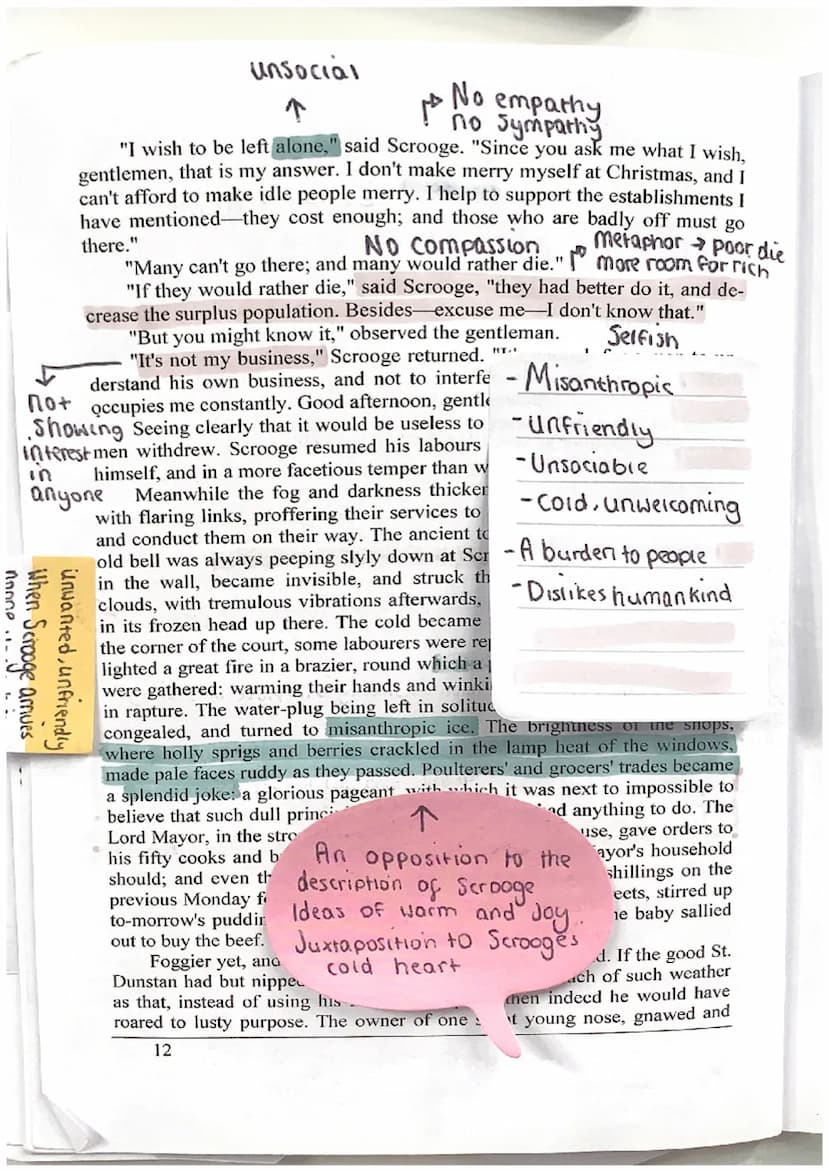 unsocial
No empathy
no sympathy
"I wish to be left alone," said Scrooge. "Since you ask me what I wish,
gentlemen, that is my answer. I don't make merry myself at Christmas, and I
can't afford to make idle people merry. I help to support the establishments I
have mentioned—they cost enough; and those who are badly off must go
there."
No compassion
Metaphor → poor die
more room for rich
"Many can't go there; and many would rather die."
"If they would rather die," said Scrooge, "they had better do it, and de-
crease the surplus population. Besides—excuse me—I don't know that."
"But you might know it," observed the gentleman.
Selfish
"It's not my business," Scrooge returned.
derstand his own business, and not to interfe
occupies me constantly. Good afternoon, gentle
Seeing clearly that it would be useless to
men withdrew. Scrooge resumed his labours
himself, and in a more facetious temper than w
not
showing
interest
in
anyone
- Misanthropic
- unfriendly
- Unsociable
- cold, unwelcoming
- A burden to people
- Dislikes humankind
Meanwhile the fog and darkness thicker
with flaring links, proffering their services to
and conduct them on their way. The ancient to
old bell was always peeping slyly down at Scr
in the wall, became invisible, and struck th
clouds, with tremulous vibrations afterwards,
in its frozen head up there. The cold became
the corner of the court, some labourers were rep
lighted a great fire in a brazier, round which a
were gathered: warming their hands and winki
in rapture. The water-plug being left in solituc
congealed, and turned to misanthropic ice. The brightness of the shops,
where holly sprigs and berries crackled in the lamp heat of the windows,
made pale faces ruddy as they passed. Poulterers' and grocers' trades became
a splendid joke: a glorious pageant, with which it was next to impossible to
believe that such dull princi nd anything to do. The
Lord Mayor, in the stro use, gave orders to
his fifty cooks and b ayor's household
should; and even th shillings on the
previous Monday f eets, stirred up
to-morrow's puddin he baby sallied
out to buy the beef.
unwanted, unfriendly
When Scrooge arrives
An opposition to the
description of Scrooge
Ideas of warm and Joy.
Juxtaposition to Scrooges
cold heart
Foggier yet, and d. If the good St.
Dunstan had but nippe ch of such weather
as that, instead of using his then indeed he would have
roared to lusty purpose. The owner of one young nose, gnawed and
12